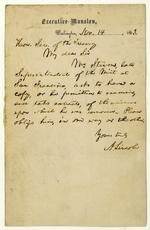 Executive Mansion,
Washington, Nov. 14, 1863.
Hon. Sec. of the Treasury
My dear Sir
Mr. Stevens, late
Superintendent of the Mint at
San Francisco, asks to have a
copy, or be permitted to examine
and take extracts, of the evidence
upon which he was removed. Please
oblige him in one way or the other.
Yours truly
A. Lincoln